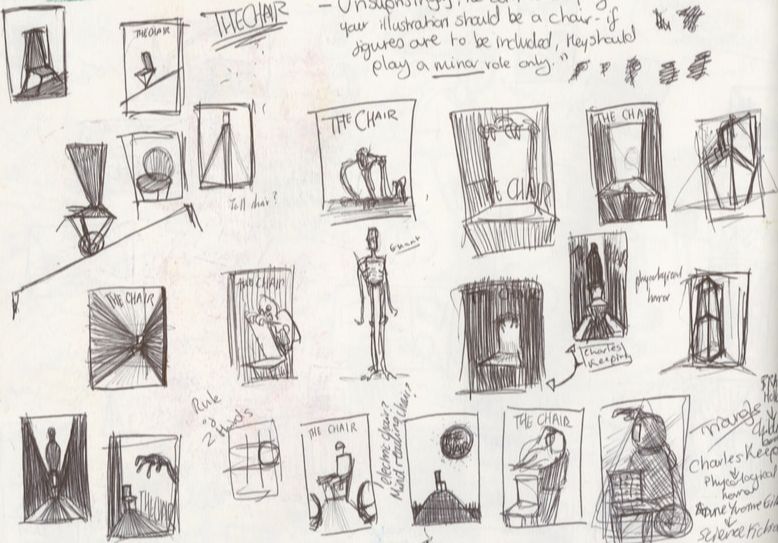 THE CHAIR
your illustration should be a chair - if
figures are to be included, they should
play a minor role only."
THE CHAIR
Tall chair?
THE CHAIR
THE CHAIR
THE CHAIR
Gaunt
phycological
horror
THE CHAIR
THE CHAIR
THE CHAIR
Charles
Keeping
Rule
of
2 Thirds
THE CHAIR
THE CHAIR
electric chair?
Mind reading chair?
THE CHAIR
Triangle
Charles Keep
Phycological
horror
Anne Yvonne
Science